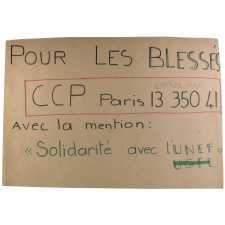 POUR LES BLESSÉS
CCP Paris 13 350 41
Avec la mention :
« Solidarité avec l'UNEF »